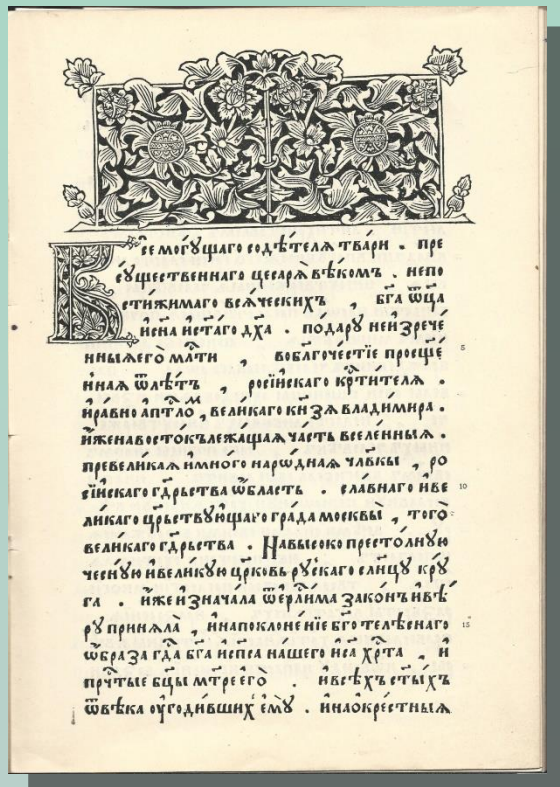 Всемогу́щаго содѣ́телѧ тва́ри . пре
сꙋ́щественнаго цесарѧ̀ вѣ́комъ . непо
сти́жимаго всѧ́ческихъ , бг҃а ѿц҃а
и҆сн҃а и҆ст҃а́го дх҃а . по́дарꙋ неи҆зрече́
нныѧ є҆го̀ мл҃ти , воблгоче́стїе просще́
ннаѧ ѿлѣ́тъ , росі́йскаго кр҃ти́телѧ .
и҆ра́вно ап҃тлом , вели́каго кн҃зѧ влади́мира .
и҆́же на восто́къ лежа́щаѧ ча́сть вселе́нныѧ .
превели́каѧ и҆мно́го наро́днаѧ члв҃кы , ро
сі́йскаго гд҃рьства ѡ҆́бласть . сла́внаго и҆ве
ли́каго цр҃ьствꙋ́ющаго гра́да москвы̀ , того̀
вели́каго гд҃рьства . На высоко престо́лнꙋю
чесн́ꙋю и҆вели́кꙋю цр҃ковь рꙋ́скаго сл҃нцꙋ крꙋ́
га . и҆́же и҆знача́ла ѿ є҆рл҃и́ма зако́нъ и҆вѣ́
рꙋ принѧла̀ , и҆напоклоне́нїе бг҃отеле́снаго
ѡ҆́браза гд҃а бг҃а и҆сп҃са на́шего і҆с҃а хр҃та̀ , и҆
пр҃чтыѧ бц҃ы мт҃ре є҆го̀ . и҆всѣ́хъ ст҃ы́хъ
ѿвѣ́ка ᲂу҆годи́вших є҆мꙋ̀ . и҆нао҆кре́стныѧ
5
10
15